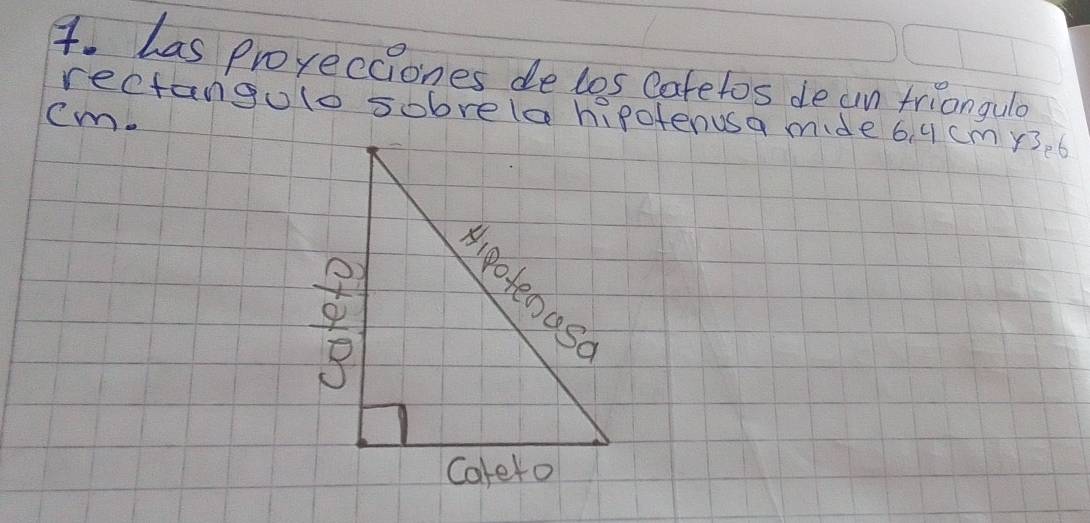 7. Las proyecciones de los Catetos de un triangulo
rectangulo sobre la hipotenusa mide 6,4 cm y 3,6
cm.
Hipotenusa
cateto
Cateto